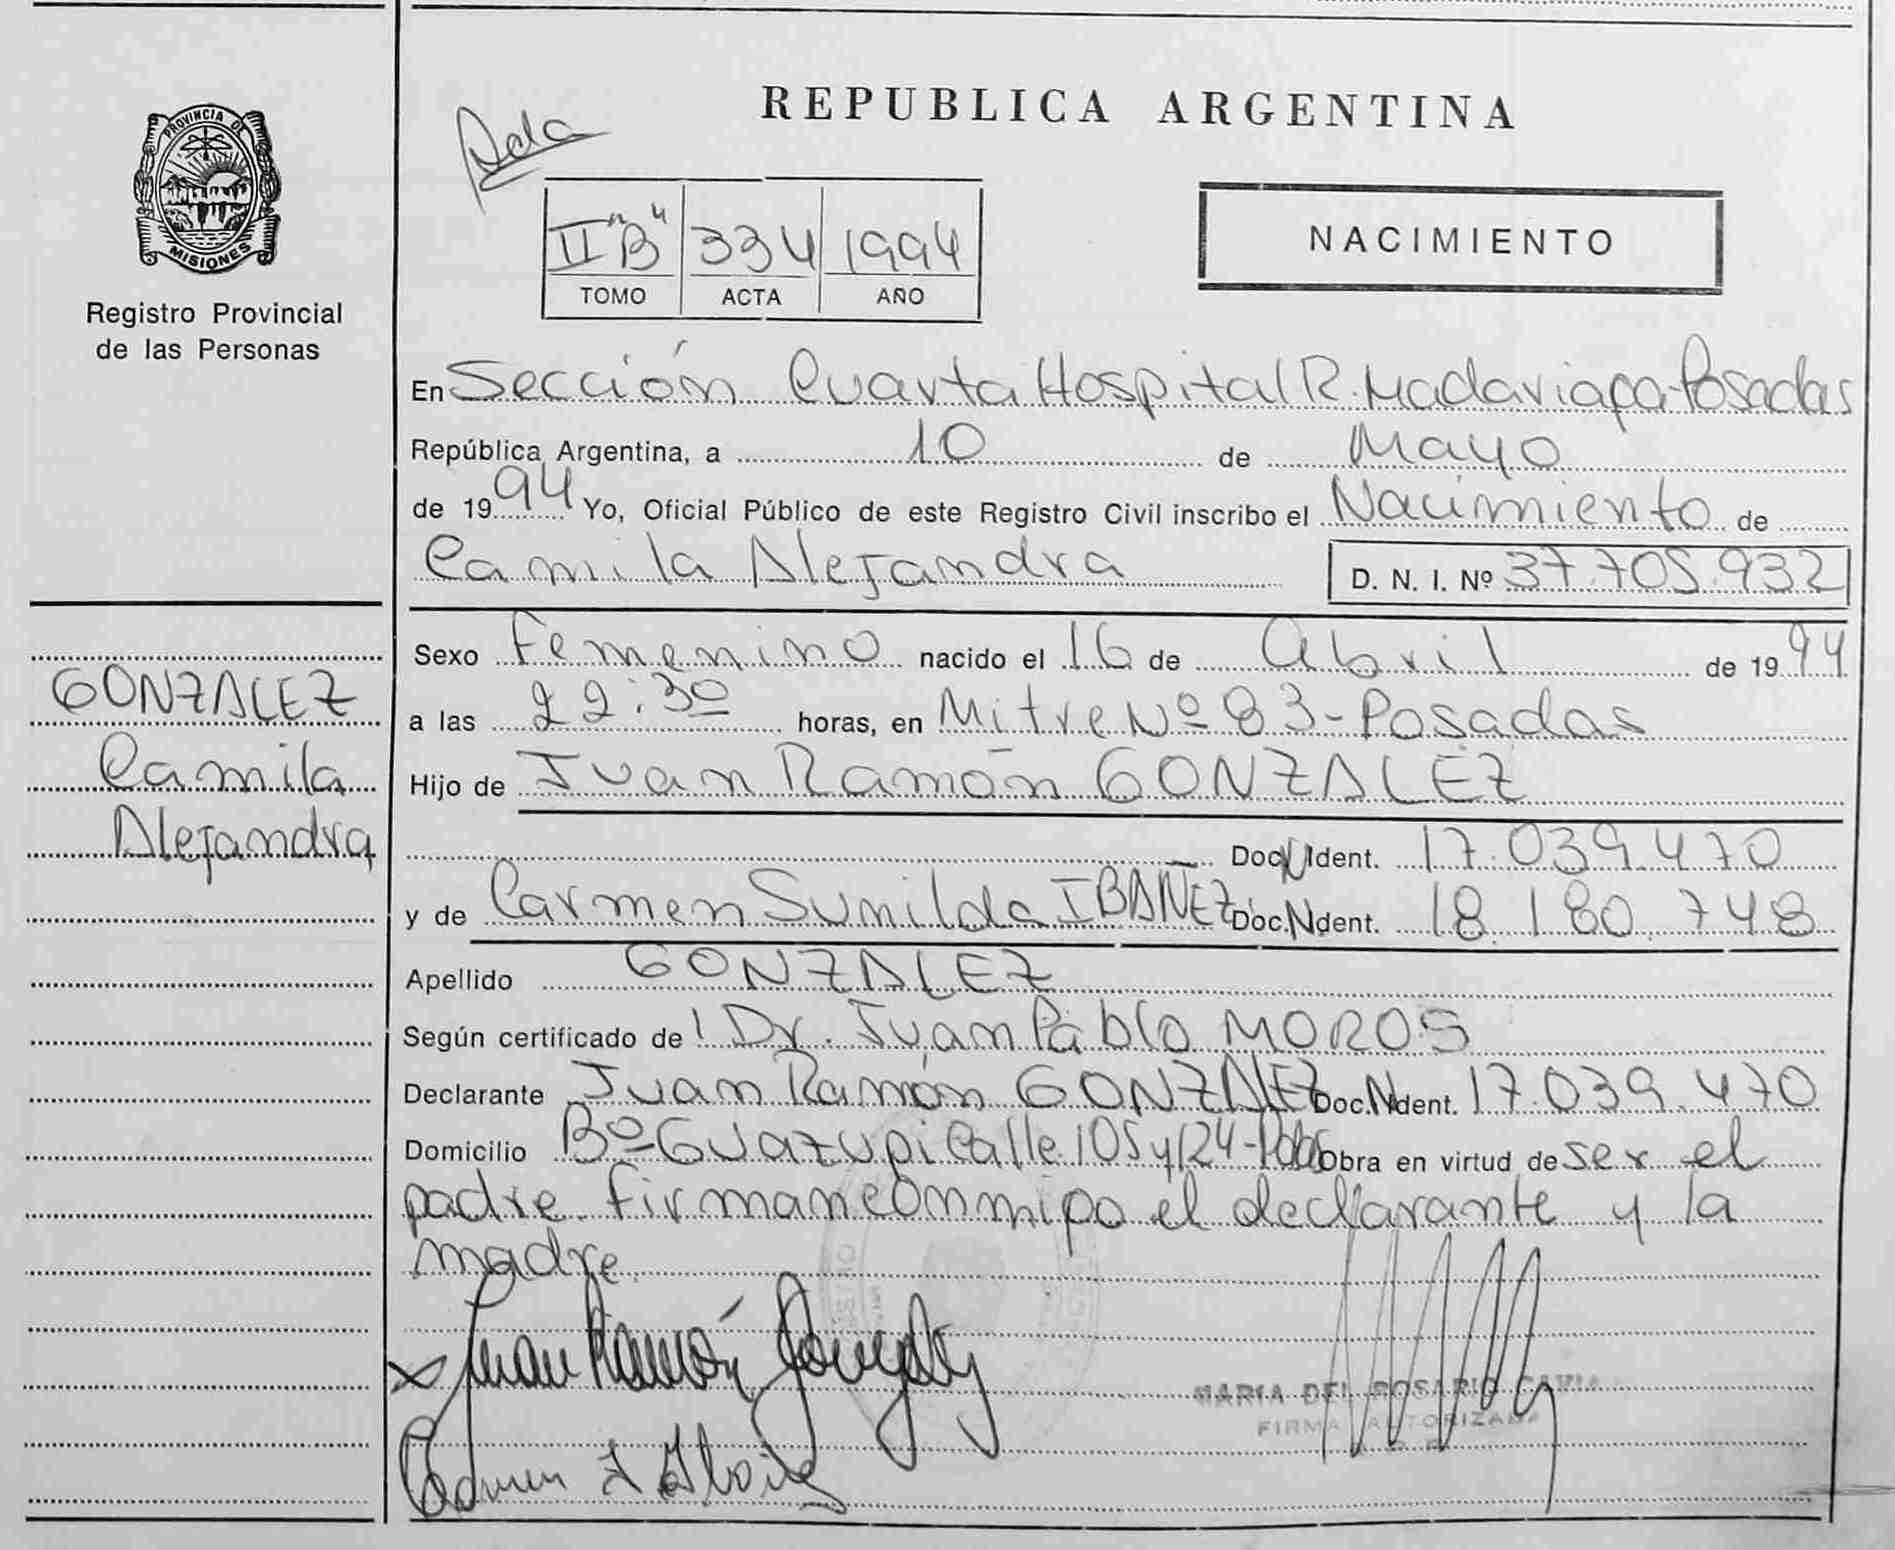 PROVINCIA DE
MISIONES
Registro Provincial
de las Personas
GONZALEZ
Camila
Alejandra
REPUBLICA ARGENTINA
II "B" 334 1994
TOMO ACTA AÑO
NACIMIENTO
En Sección Cuarta Hospital R. Madariaga-Posadas
República Argentina, a 10 de Mayo
de 1994 Yo, Oficial Público de este Registro Civil inscribo el Nacimiento de
Camila Alejandra D. N. I. Nº 37.705.932
Sexo Femenino nacido el 16 de Abril de 1994
a las 22:30 horas, en Mitre Nº 83-Posadas
Hijo de Juan Ramón GONZALEZ
Doc. N Ident. 17.039.470
y de Carmen Sunilda IBAÑEZ Doc. N Ident. 18.180.748
Apellido GONZALEZ
Según certificado de l Dr. Juan Pablo MOROS
Declarante Juan Ramón GONZALEZ Doc. N Ident. 17.039.470
Domicilio Bº Guazupi Calle 105 y 124-Pdas Obra en virtud de ser el
padre. Firman conmigo el declarante y la
madre.
x Juan Ramón Gonzalez
MARIA DEL ROSARIO
FIRMA AUTORIZADA
Carmen S Ibañez